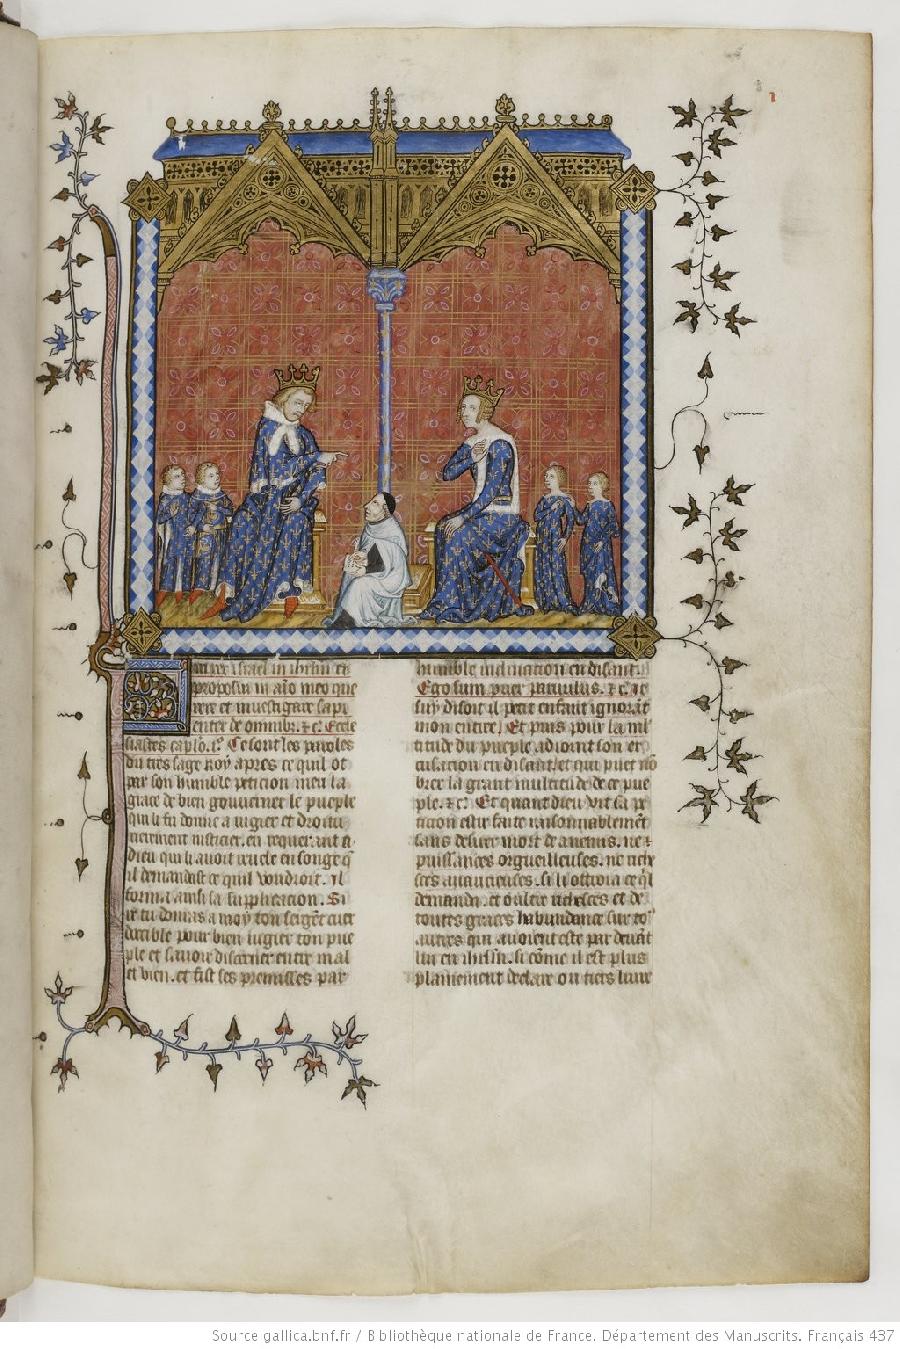 1
rex israel in ihrlm et
proposui in aīo meo que
rere et investigare sapi
enter de omnib; &c. Eccle
siastes caplo. i°. Ce sont les paroles
du tres sage roy apres ce quil ot
par son humble peticion meu la
grace de bien gouverner le pueple
qui li fu donne a iugier et droitu
rierement iusticier. en requerant a
dieu qui li avoit revele en songe q̄
il demandast ce quil voudroit. Il
forma ainsi sa supplicacion. Si
re tu donras a moy ton sergent cuer
docible pour bien iugier ton pue
ple et savoir discerner entre mal
et bien. et fist ses premisses par
humble inclinacion en disant.
Ego sum puer parvulus. &c. ie
suy disoit il petit enfant ignorāt
mon entree. Et puis pour la ml
titude du pueple adioint son ex
cusacion en disant. et qui puet nō
brer la grant multitude de ce pue
ple. &c. Et quant dieu vit sa pe
ticion estre faite raisonnablemēt
sans desirer mort de anemis. ne
puissances orgueilleuses. ne riche
sces avaricieuses. si li ottroia ce q'l
demanda. et oultre richesces et de
toutes graces habundance sur to9
autres qui avoient este par devāt
lui en ihrlm. si cōme il est plus
plainement declare ou tiers livre
Source gallica.bnf.fr / Bibliothèque nationale de France. Département des Manuscrits. Français 437